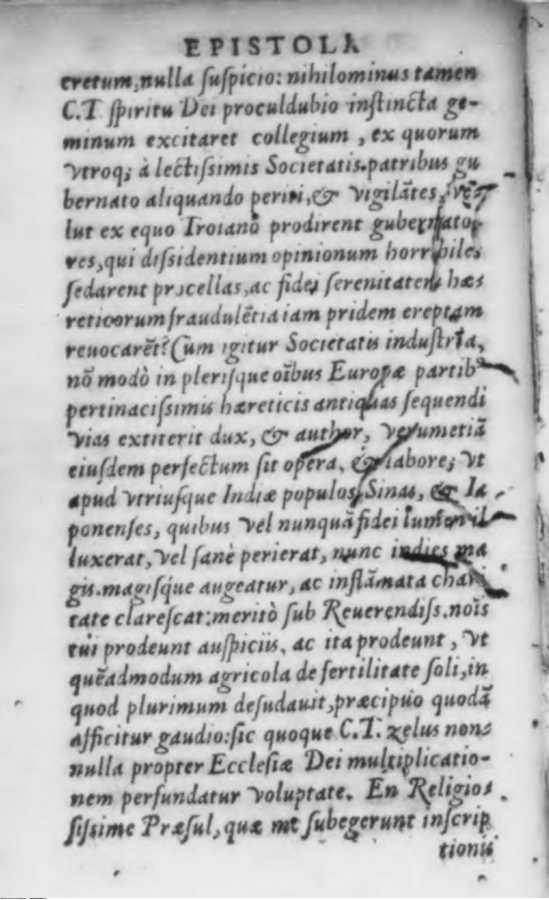 EPISTOLA
cretum, nulla ſuſpicio: nihilominus tamen
C.T. ſpiritu Dei proculdubio inſtincta ge-
minum excitaret collegium, ex quorum
vtroq; à lectiſsimis Societatis patribus gu
bernato aliquando periti, & vigilãtes, ve-
lut ex equo Troiano prodirent gubernato-
res, qui diſsidentium opinionum horribiles
ſedarent procellas, ac fidei ſerenitatem hæ
reticorum fraudulẽtia iam pridem ereptam
reuocarẽt? Cum igitur Societatis induſtria,
nõ modò in pleriſque oĩbus Europæ partib
pertinaciſsimis hæreticis antiquas ſequendi
vias extiterit dux, & author, verumetiã
eiuſdem perfectum ſit opera, & labore; vt
apud vtriuſque Indiæ populos, Sinas, & Ia
ponenſes, quibus vel nunquã fidei lumen il
luxerat, vel ſanè perierat, nunc indies ma
gis. magiſq́ue augeatur, ac inflãmata chari
tate clareſcat: meritò ſub Reuerendiſs. noĩs
tui prodeunt auſpiciis, ac ita prodeunt, vt
quẽadmodum agricola de fertilitate ſoli, in
quod plurimum deſudauit, præcipuo quodã
afficitur gaudio: ſic quoque C.T. zelus non
nulla propter Eccleſiæ Dei multiplicatio-
nem perfundatur voluptate. En Religioſ
ſiſsime Præſul, quæ me ſubegerunt inſcrip
tionis